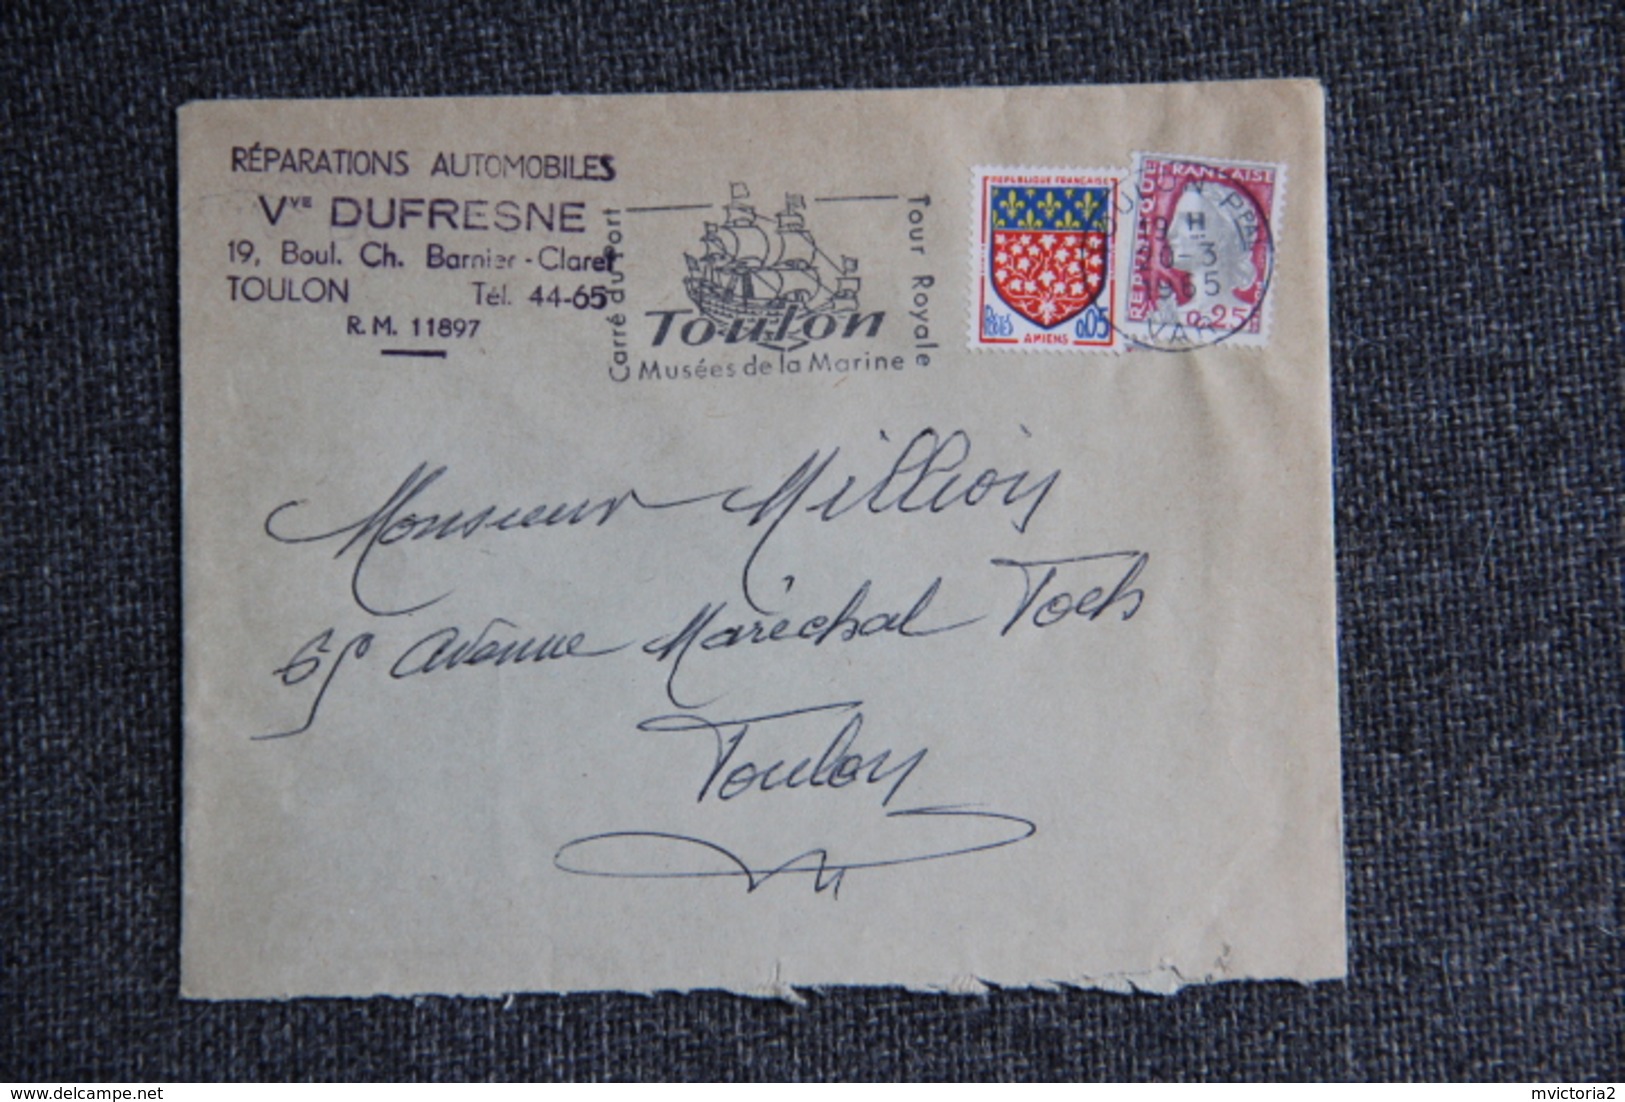 RÉPARATIONS AUTOMOBILES
Vve DUFRESNE
19, Boul. Ch. Barnier - Claret
TOULON Tél. 44-65
R. M. 11897
Carré du Port
Toulon
Musées de la Marine
Tour Royale
REPUBLIQUE FRANÇAISE
POSTES 0,05
AMIENS
REPUBLIQUE FRANÇAISE
0.25
TOULON Ppal
19 H
1965
VAR
Monsieur Millioy
65 avenue Maréchal Foch
Toulon
delcampe.net
mvictoria2